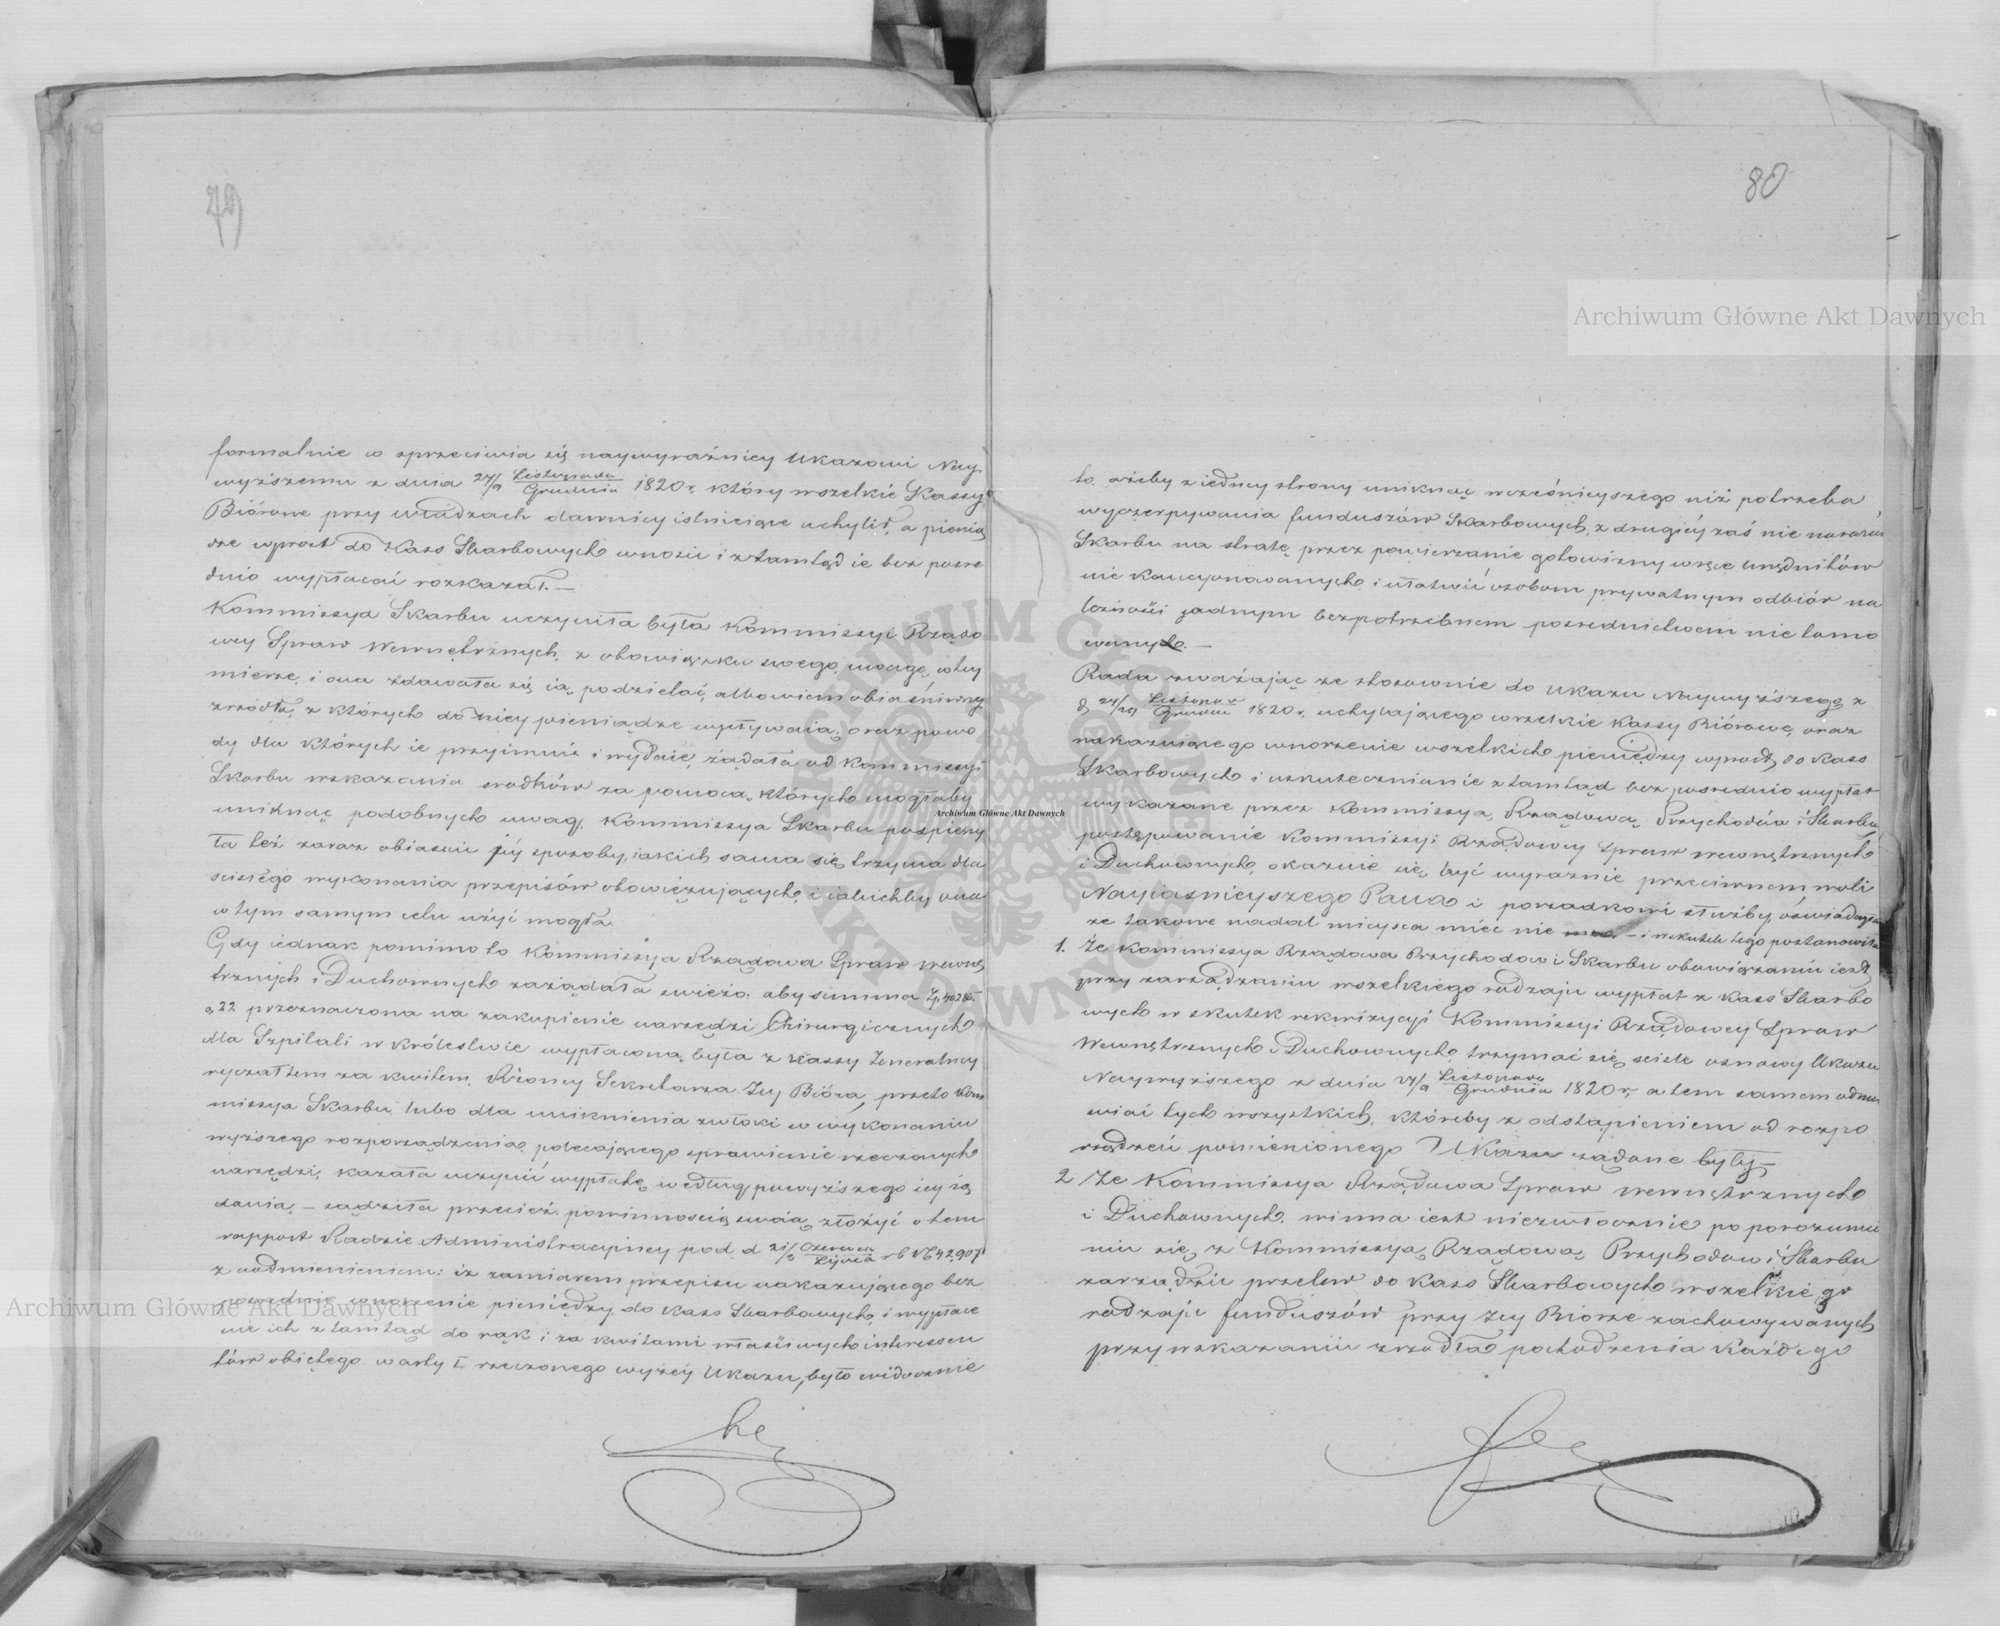 79
formalnie w sprzeciwia się naywyraźnieÿ Ukazowi Nay
wyższemu z dnia 27/9 Listopada/Grudnia 1820 r, który wszelkie Kassy
Biórowe przy władzach dawniey istnieiące uchylił, a pienią
dze wprost do Kass Skarbowych wnosić i ztamtąd ie bez pośre
dnio wypłacać rozkazał. —
Kommissya Skarbu uczyniła była Kommissyi Rządo
wey Spraw Wewnętrznych, z obowiązku swego, uwagę w tey
mierze, i ona zdawała się ią podzielać, albowiem obiaśniwszy
źródła, z których do niey pieniądze wpływaią, oraz powo
dy dla których ie przyimuie i wydaie, żądała od Kommissyi
Skarbu wskazania srodków za pomocą, których mogłaby
uniknąć podobnych uwag. Kommissya Skarbu pospieszy
ła też zaraz obiasnić jéy sposoby, iakich sama się trzyma dla
scisłego wykonania przepisów obowiązujących, i iakichby ona
w tym samym celu użyć mogła.
Gdy iednak pomimo to Kommissya Rządowa Spraw Wewnę
trznych i Duchownych zażądała swieżo, aby summa Zp. 40285
g 22 przeznaczona na zakupienie narzędzi Chirurgicznych
dla Szpitali w Królestwie wypłaconą była z Kassy Jeneralney
ryczałtem za kwitem, Sekretarza Jey Bióra, przeto Kom
missya Skarbu lubo dla uniknienia zwłoki w wykonaniu
wyższego rozporządzenia, polecającego sprawienie rzeczonych
narzędzi, kazała uczynić wypłatę według powyższego iey żą
dania, — sądziła przecież powinnością swoią złożyć o tem
rapport Radzie Administracyiney pod d 21/3 Czerwca/Lipca rb N 42,907
z nadmienieniem: iż zamiarem przepisu nakazującego bez
pośrednie wnoszenie pieniędzy do Kass Skarbowych, i wypłace
nie ich ztamtąd do rąk i za kwitami właściwych interessen
tów obiętego w arty 1 rzeczonego wyżey Ukazu, było widocznie
80
to, ażeby z iedney strony uniknąć wcześnieyszego niż potrzeba
wyczerpywania funduszów Skarbowych, z drugiéy zaś nie narazić
Skarbu na stratę przez powierzanie gotowizny w ręce Urzędników
nie kaucyonowanych i ułatwić osobom prywatnym odbiór na
leżności żadnym bezpotrzebnem pośrednictwem nie tamo
wany. —
Rada zważając że stosownie do Ukazu Naywyższego z
d 27/9 Listopada/Grudnia 1820 r, uchylającego wszelkie Kassy Biórowe, oraz
nakazuiącego wnoszenie wszelkich pieniędzy wprost do Kass
Skarbowych i uskutecznianie ztamtąd bez pośrednio wypłat
wykazane przez Kommissyą Rządową Przychodów i Skarbu,
postępowanie Kommissyi Rządowey Spraw Wewnętrznych
i Duchownych, okazuie się być wyraznie przeciwnem woli
Nayiasnieyszego Pana i porządkowi służby, oświadczyła
że takowe nadal mieysca mieć nie — i wskutek tego postanowiła
1. Że Kommissya Rządowa Przychodow i Skarbu obowiązaną iest
przy zarządzaniu wszelkiego rodzaju wypłat z Kass Skarbo
wych w skutek rekwizycyi Kommissyi Rządowey Spraw
Wewnętrznych i Duchownych, trzymać się scisle osnowy Ukazu
Naywyższego z dnia 27/9 Listopada/Grudnia 1820 r, a tem samem odma
wiać tych wszystkich, któreby z odstąpieniem od rozpo
rządzeń pomienionego Ukazu żądane były,
2 Że Kommissya Rządowa Spraw Wewnętrznych
i Duchownych, winna iest niezwłocznie po porozumie
niu się z Kommissyą Rządową Przychodow i Skarbu
zarządzić przelew do Kass Skarbowych wszelkiego
rodzaju funduszów przy Jey Biorze zachowywanych
przy wskazaniu zrzodła pochodzenia każdego
Archiwum Główne Akt Dawnych
Archiwum Główne Akt Dawnych
Archiwum Główne Akt Dawnych
ARCHIWUM GŁÓWNE AKT DAWNYCH